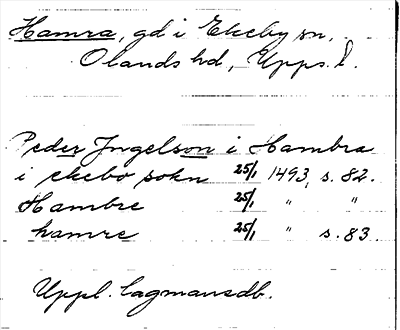 Hamra, gd i Ekeby sn,
Olands hd, Upps. l.
Peder Jngelson i Hambra
i ekebo sokn 25/1 1493, s. 82.
Hambre 25/1 " "
hamre 25/1 " s. 83.
Uppl. lagmansdb.